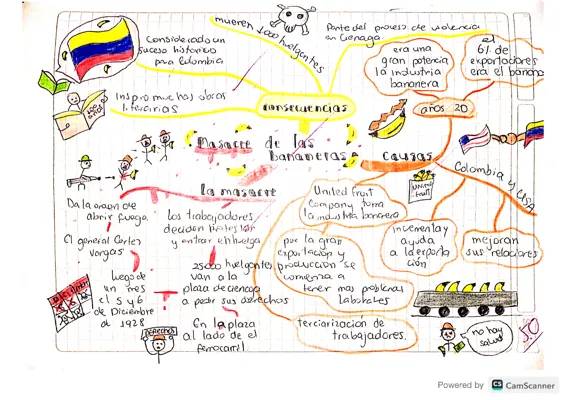 mueren 1000 huelgentes
Parte del proceso de violencia
en Cienaga.
Considerado un
suceso historico
para Colombia
era una
gran potencia
la industria
bananera
el
6% de
exportadores
era el banano
Inspiro muchas obras
literarias
100 años
consecuencias
años 20
Masacre de las
bananeras
causas
Colombia y USA
la masacre
United Fruit
Company toma
la industria bananera
United
Fruit
Da la orden de
abrir fuego.
El general Cortes
vargas
los trabajadores
deciden
y entrar en huelga
incrementa y
ayuda
a la exporta
ción
mejoran
sus relaciones
por la gran
exportación y
producción se
comienza a
tener mas problemas
laborales
25000 huelgentes
van a la
plaza de cienaga
a pedir sus derechos
luego de
un mes
el 5 y 6
de Diciembre
de 1928
En la plaza
al lado de el
ferrocarril
DERECHOS
terciarización de
trabajadores.
no hay
salud
5.0
Powered by CS CamScanner